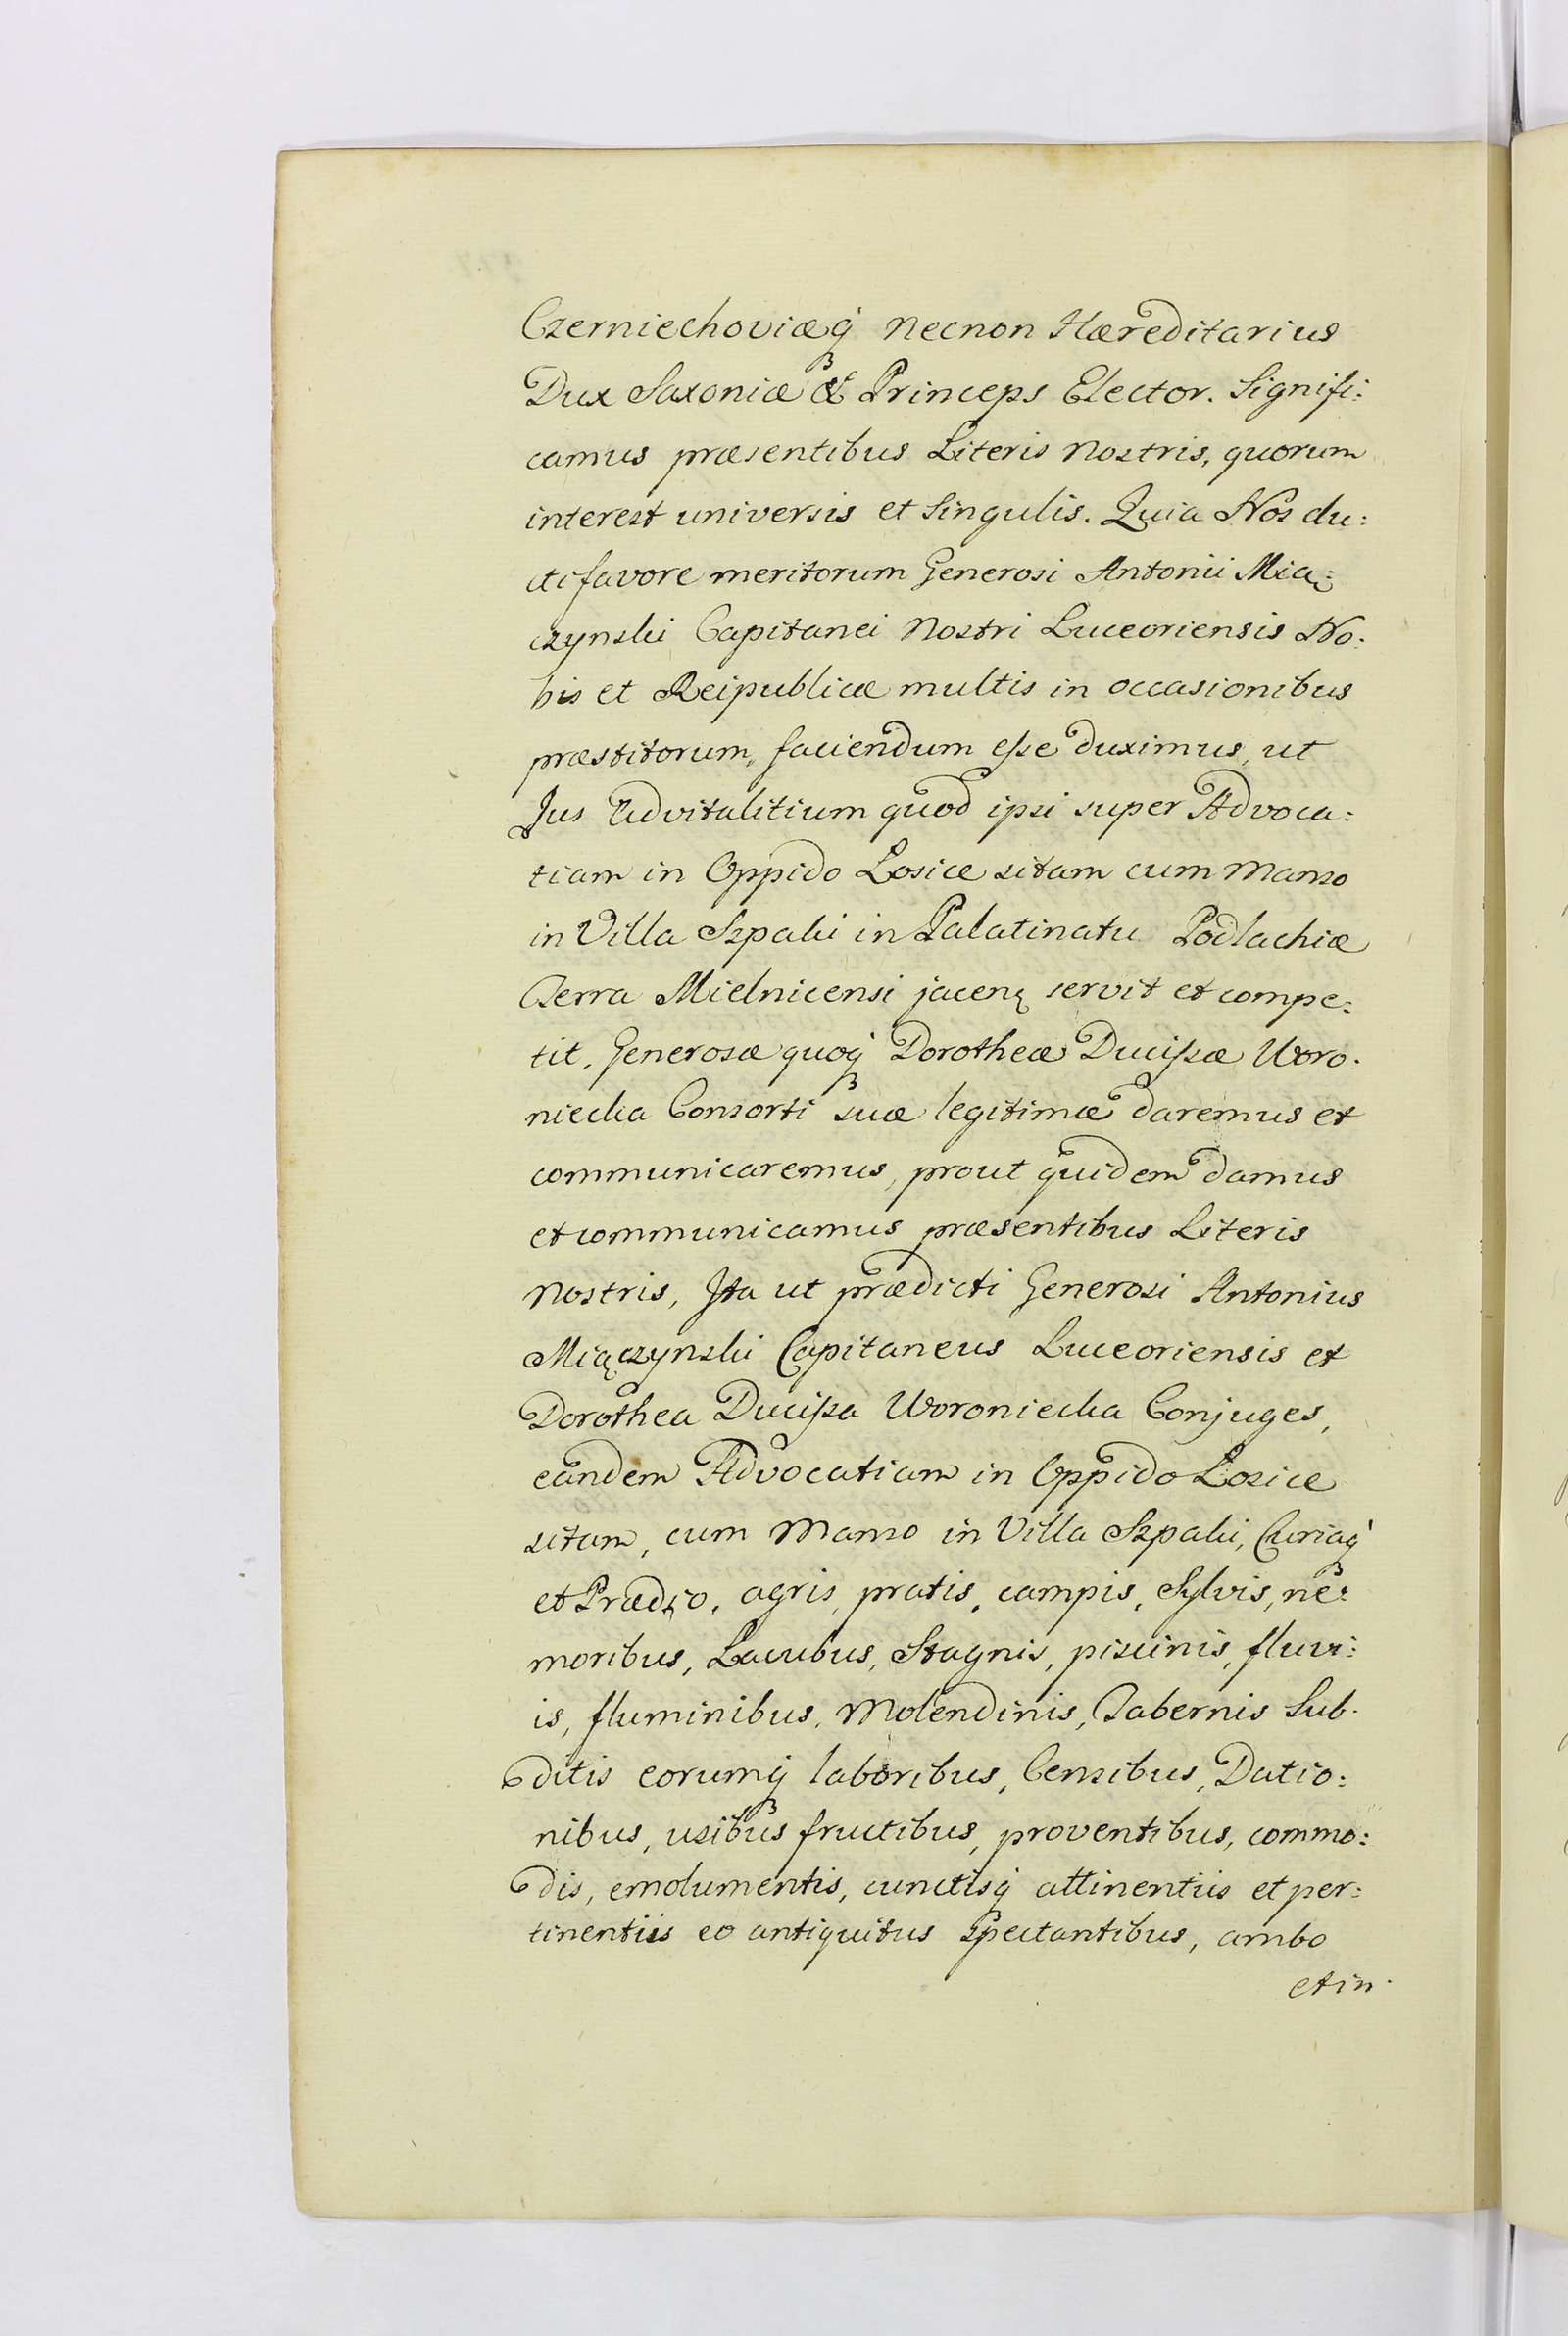 Czerniechoviæq́ꝫ necnon Hæreditarius
Dux Saxoniæ & Princeps Elector. Signifi:
camus præsentibus Literis nostris, quorum
interest universis et singulis. Quia Nos du:
cti favore meritorum Generosi Antonii Mią:
czynski Capitanei Nostri Luceoriensis No:
bis et Reipublicæ multis in occasionibus
præstitorum, faciendum eſse duximus, ut
Jus Advitalitium quod ipsi super Advoca:
tiam in Oppido Losice sitam cum Manso
in Villa Szpaki in Palatinatu Podlachiæ
Terra Mielnicensi jacenꝫ servit et compe:
tit, Generosæ quoq́ꝫ Dorotheæ Duciſsæ Woro.
niecka Consorti suæ legitimæ daremus et
communicaremus, prout quidem damus
et communicamus præsentibus Literis
nostris, Ita ut prædicti Generosi Antonius
Miączynski Capitaneus Luceoriensis et
Dorothea Duciſsa Woroniecka Conjuges,
eandem Advocatiam in Oppido Losice
sitam, cum Manso in Villa Szpaki, Curiaq́ꝫ
et Prædio, agris, pratis, campis, Sylvis, ne:
moribus, Lacubus, Stagnis, piscinis, fluvi:
is, fluminibus, Molendinis, Tabernis Sub.
ditis eorumq́ꝫ laboribus, Censibus, Datio:
nibus, usibus fructibus, proventibus, commo:
dis, emolumentis, cunctisq́ꝫ attinentiis et per:
tinentiis eo antiquitus spectantibus, ambo
et in.